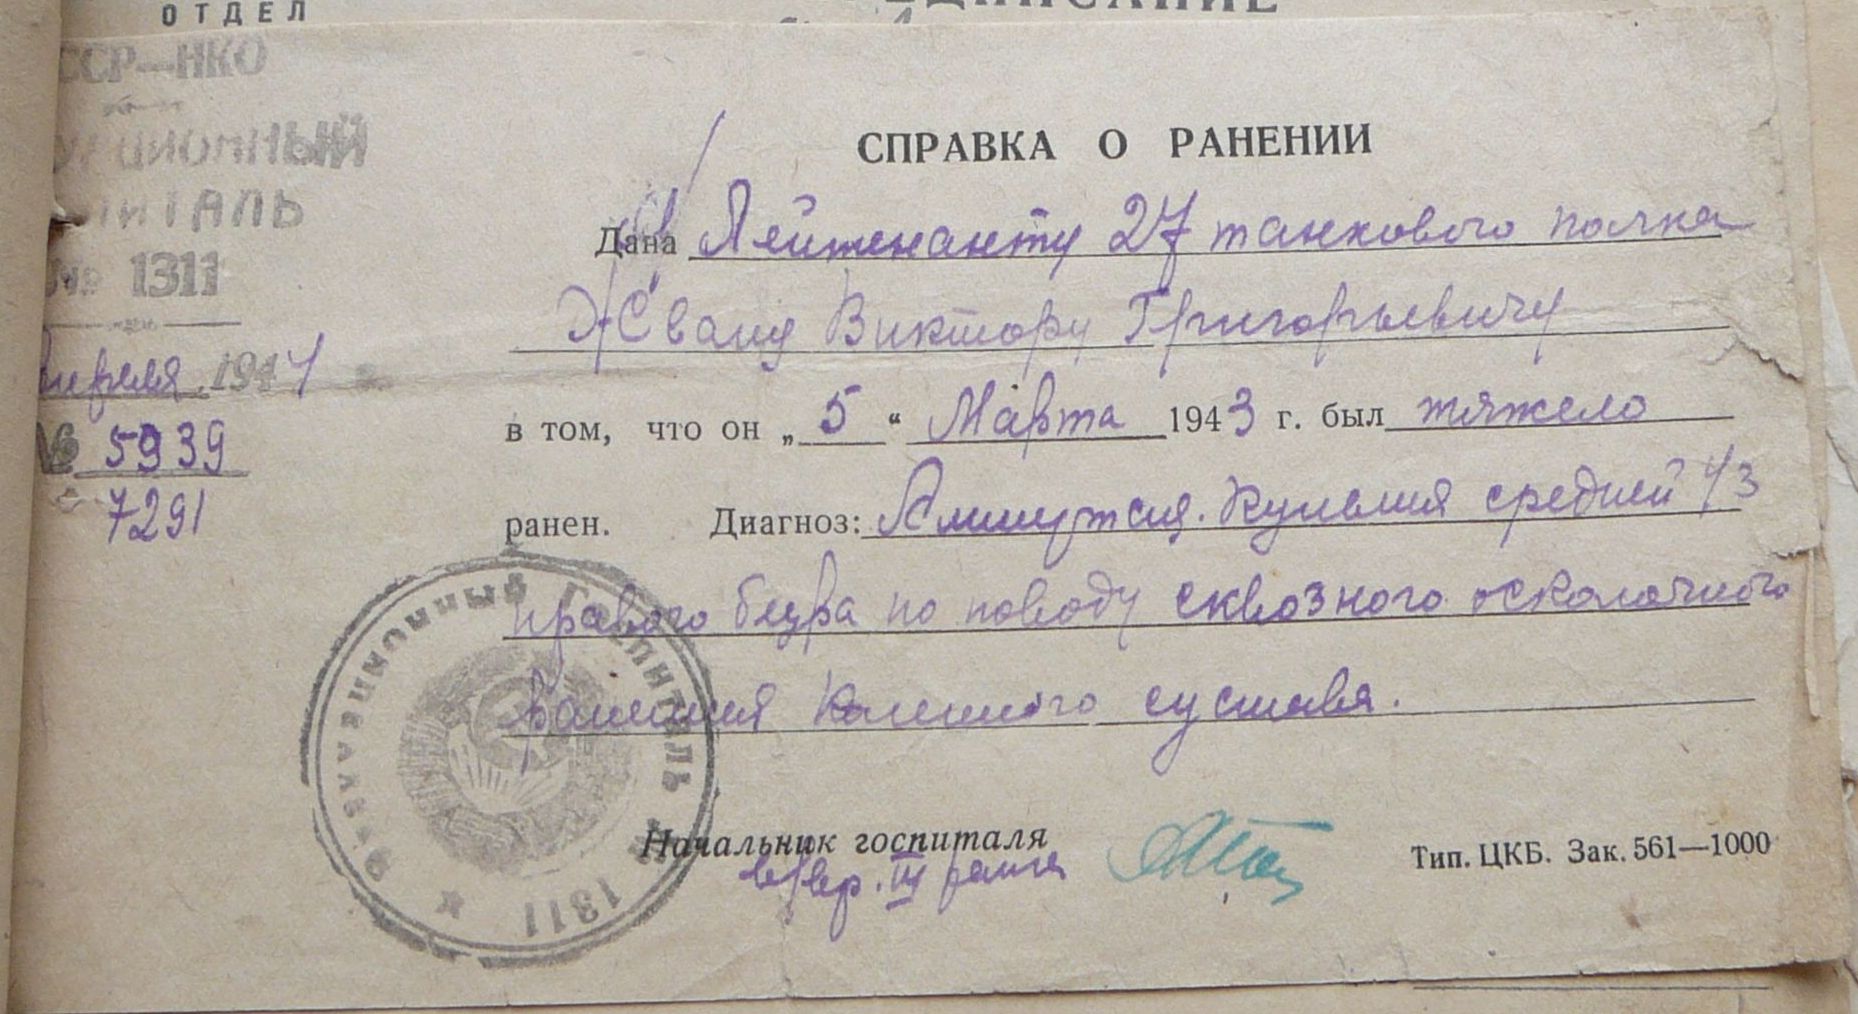 ОТДЕЛ
ССР—НКО
УАЦИОННЫЙ
ПИТАЛЬ
№ 1311
апреля 1944 г.
№ 5939
7291
СПРАВКА О РАНЕНИИ
Дана Лейтенанту 27 танкового полка
Жвану Виктору Григорьевичу
в том, что он „ 5 “ Марта 1943 г. был тяжело
ранен. Диагноз: Ампутац. культия средней 1/3
правого бедра по поводу сквозного осколочного
ранения коленного сустава.
Начальник госпиталя
в/вр. III ранга
Тип. ЦКБ. Зак. 561—1000
Эвакуационный Госпиталь № 1311